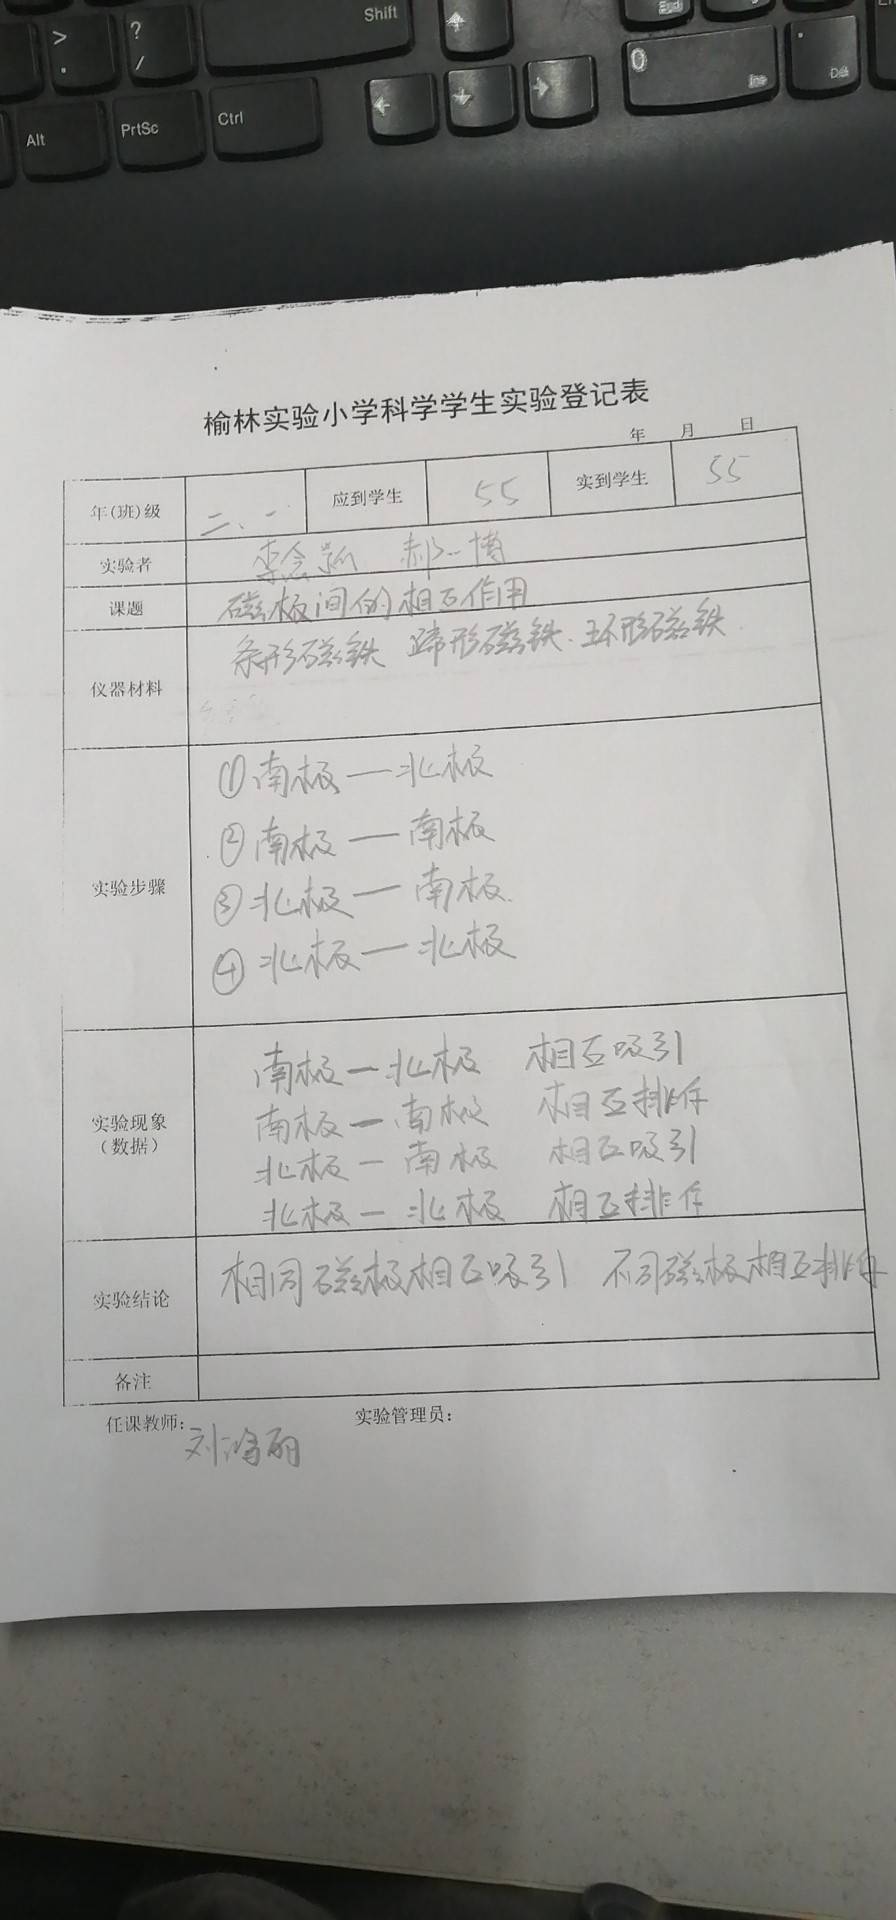 Shift
End
>
.
?
/
0
Ins
.
Del
Alt
PrtSc
Ctrl
榆林实验小学科学学生实验登记表
年 月 日
年(班)级 二、一 应到学生 55 实到学生 55
实验者 李念 郝一博
课题 磁极间的相互作用
仪器材料 条形磁铁 蹄形磁铁、环形磁铁
实验步骤
①南极—北极
②南极—南极
③北极—南极.
④北极—北极
实验现象
(数据)
南极—北极 相互吸引
南极—南极 相互排斥
北极—南极 相互吸引
北极—北极 相互排斥
实验结论 相同磁极相互吸引 不同磁极相互排斥
备注
任课教师: 实验管理员:
刘 丽